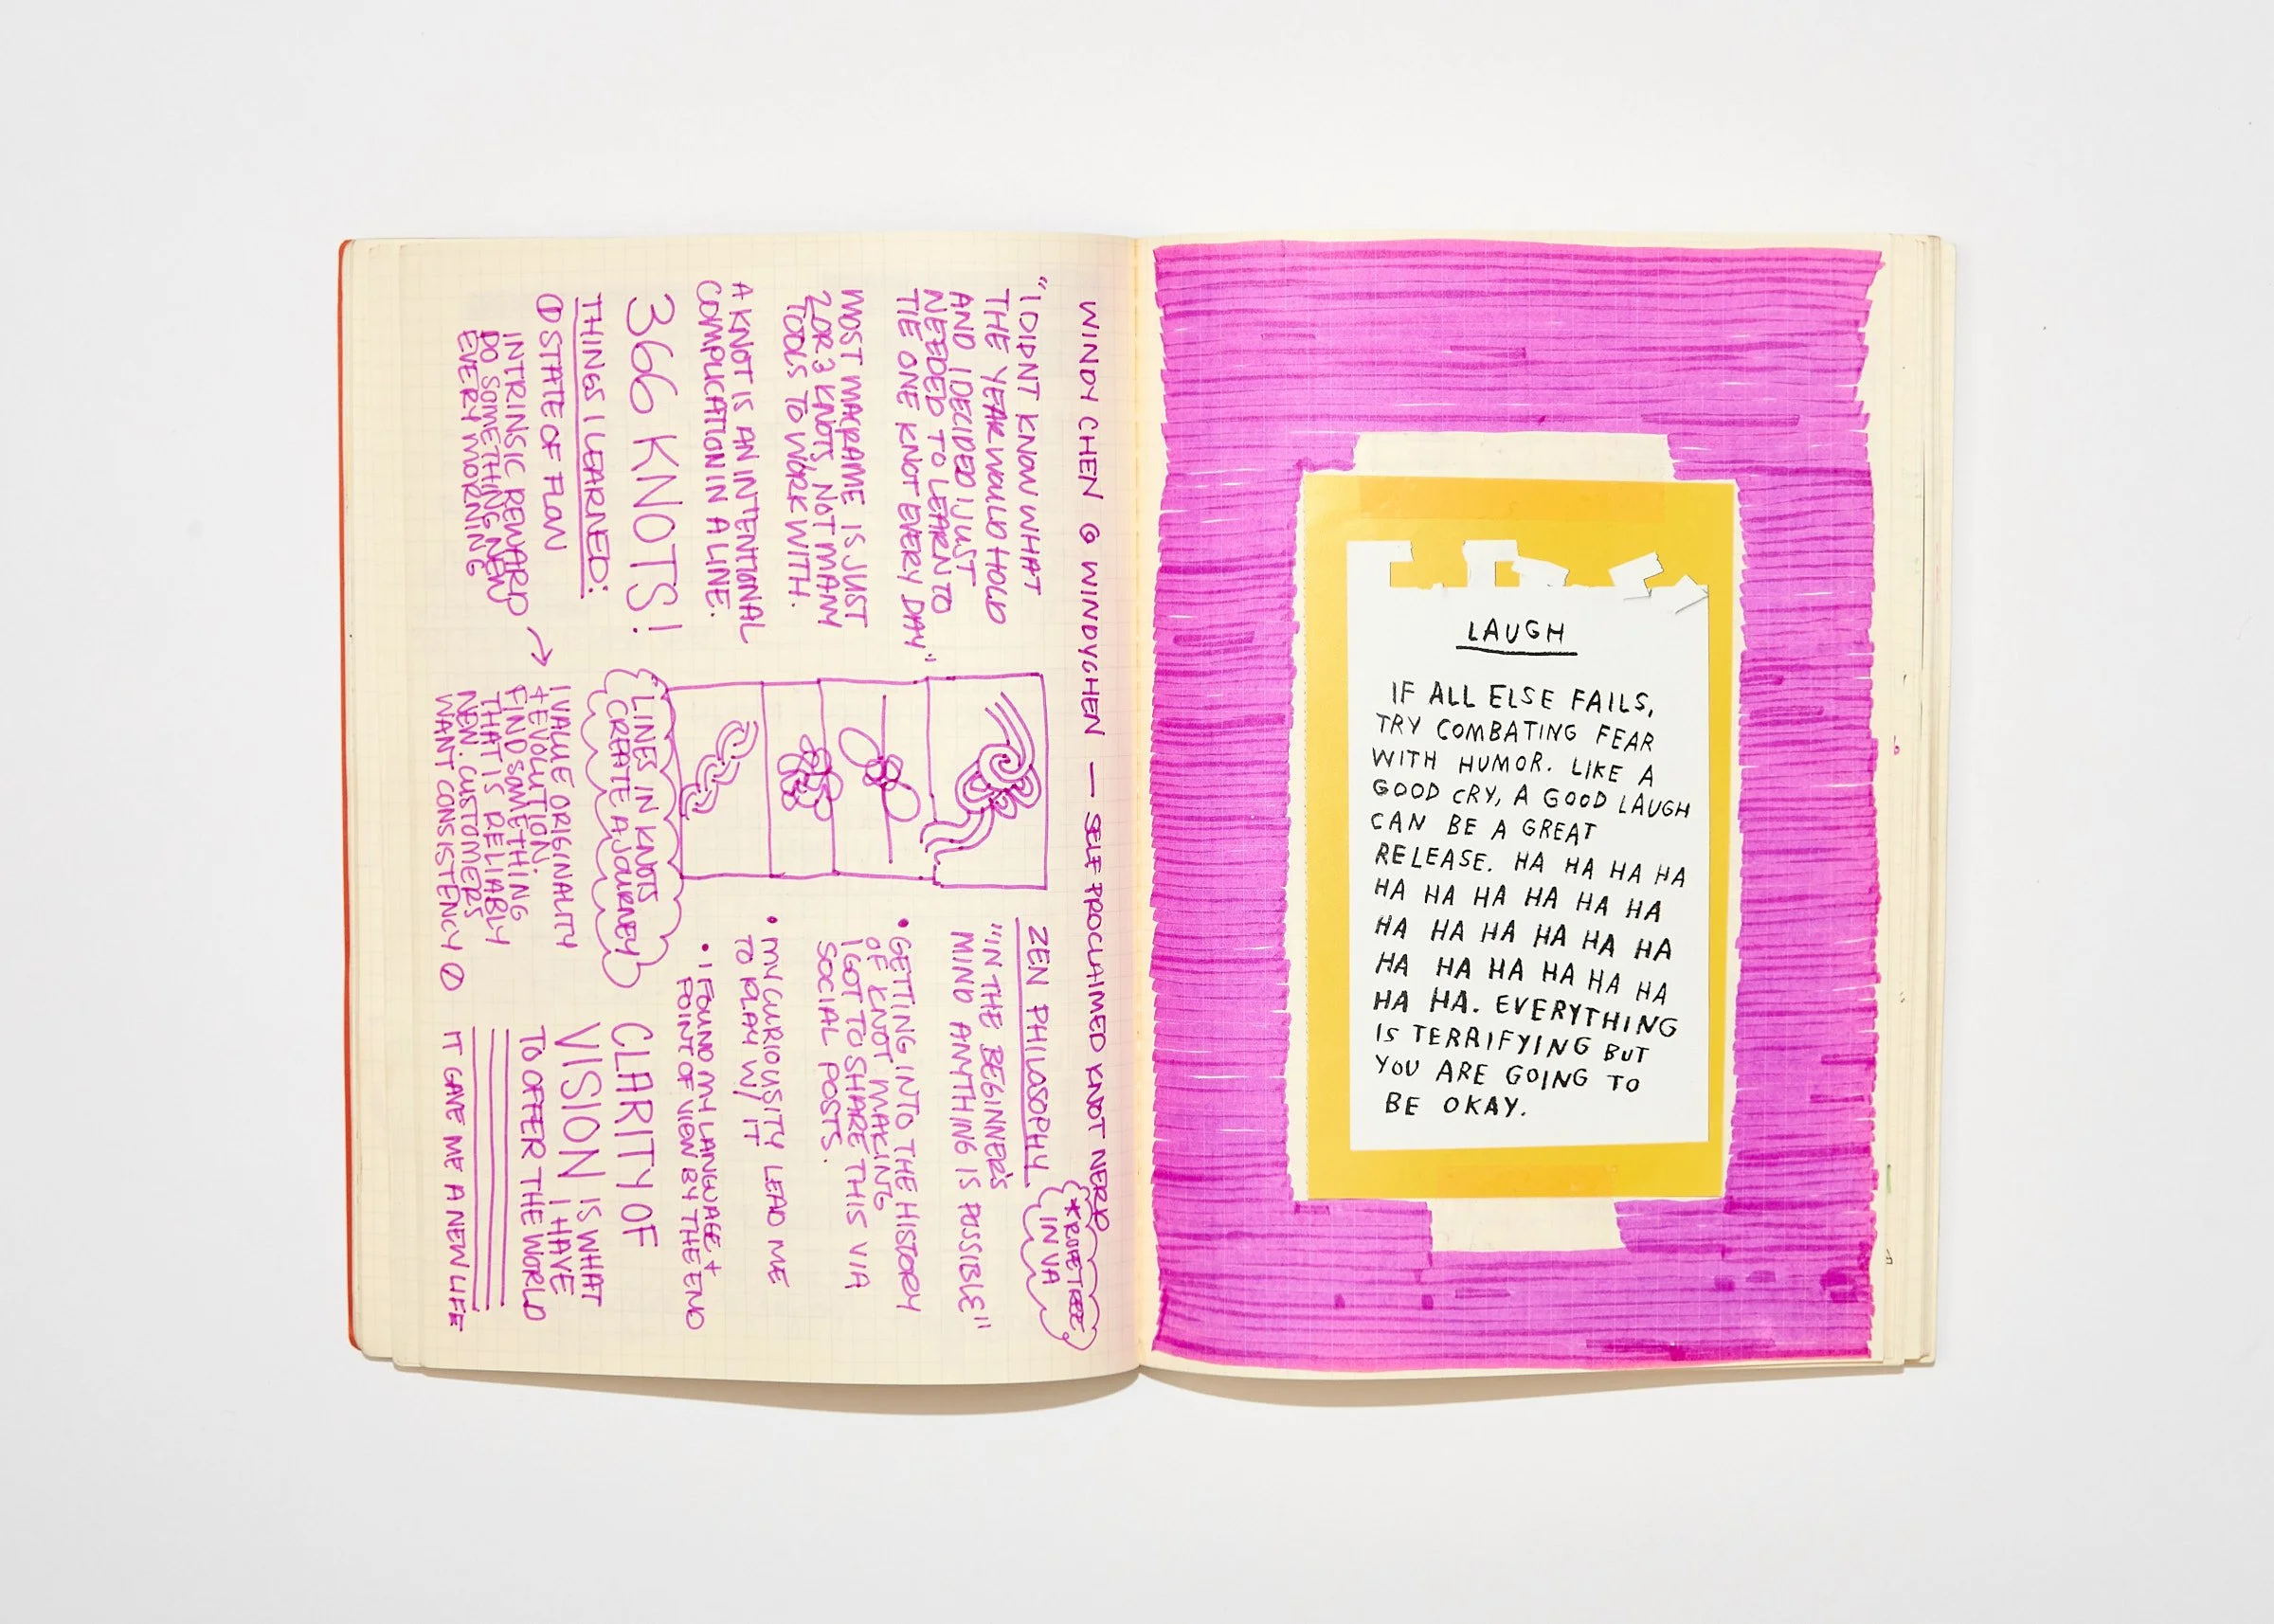 WINDY CHEN @ WINDYCHEN — SELF PROCLAIMED KNOT NERD
"I DIDNT KNOW WHAT
THE YEAR WOULD HOLD
AND I DECIDED I JUST
NEEDED TO LEARN TO
TIE ONE KNOT EVERY DAY"
MOST MACRAME IS JUST
2 OR 3 KNOTS, NOT MANY
TOOLS TO WORK WITH.
A KNOT IS AN INTENTIONAL
COMPLICATION IN A LINE.
366 KNOTS!
THINGS I LEARNED:
① STATE OF FLOW
INTRINSIC REWARD
DO SOMETHING NEW
EVERY MORNING
"LINES IN KNOTS
CREATE A JOURNEY
I VALUE ORIGINALITY
+ EVOLUTION.
FIND SOMETHING
THAT IS RELIABLY
NEW. CUSTOMERS
WANT CONSISTENCY
IN VA
ZEN PHILOSOPHY
"IN THE BEGINNER'S
MIND ANYTHING IS POSSIBLE"
• GETTING INTO THE HISTORY
OF KNOT MAKING
I GOT TO SHARE THIS VIA
SOCIAL POSTS.
• MY CURIOUSITY LEAD ME
TO PLAY W/ IT
• I FOUND MY LANGUAGE +
POINT OF VIEW BY THE END
CLARITY OF
VISION IS WHAT
I HAVE
TO OFFER THE WORLD
IT GAVE ME A NEW LIFE
LAUGH
IF ALL ELSE FAILS,
TRY COMBATING FEAR
WITH HUMOR. LIKE A
GOOD CRY, A GOOD LAUGH
CAN BE A GREAT
RELEASE. HA HA HA HA
HA HA HA HA HA HA
HA HA HA HA HA HA
HA HA HA HA HA HA
HA HA. EVERYTHING
IS TERRIFYING BUT
YOU ARE GOING TO
BE OKAY.